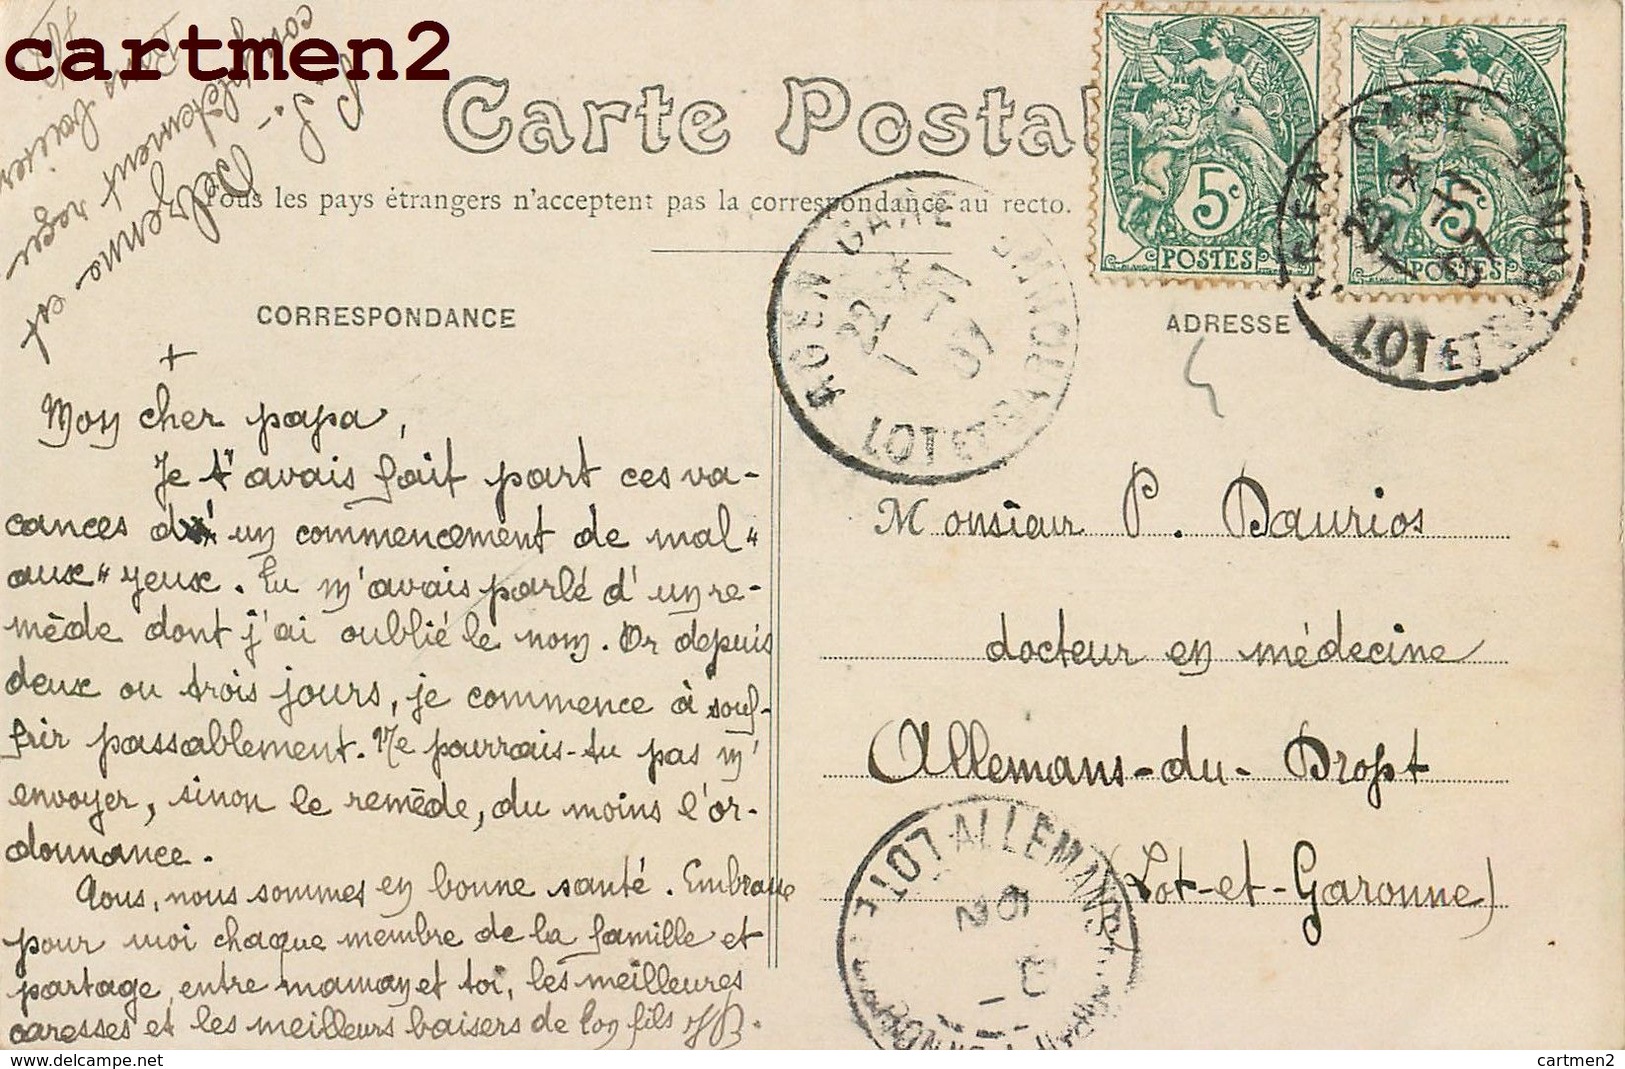 cartmen2
Carte Postale
Tous les pays étrangers n'acceptent pas la correspondance au recto.
CORRESPONDANCE
ADRESSE
5c
POSTES
5c
POSTES
AGEN GARE
22 1 07
LOT ET GARONNE
AGEN GARE
LOT ET GARONNE
Mon cher papa,
Je t'avais fait part ces va-
cances d'un commencement de mal "
aux " yeux. Tu m'avais parlé d'un re-
mède dont j'ai oublié le nom. Or depuis
deux ou trois jours, je commence à souf-
frir passablement. Ne pourrais-tu pas m'
envoyer, sinon le remède, du moins l'or-
donnance.
Tous, nous sommes en bonne santé. Embrasse
pour moi chaque membre de la famille et
partage, entre maman et toi, les meilleures
caresses et les meilleurs baisers de ton fils
Monsieur P. Daurios
docteur en médecine
Allemans-du-Dropt
(Lot-et-Garonne)
ALLEMANS
cartmen2 - www.delcampe.net
cartmen2